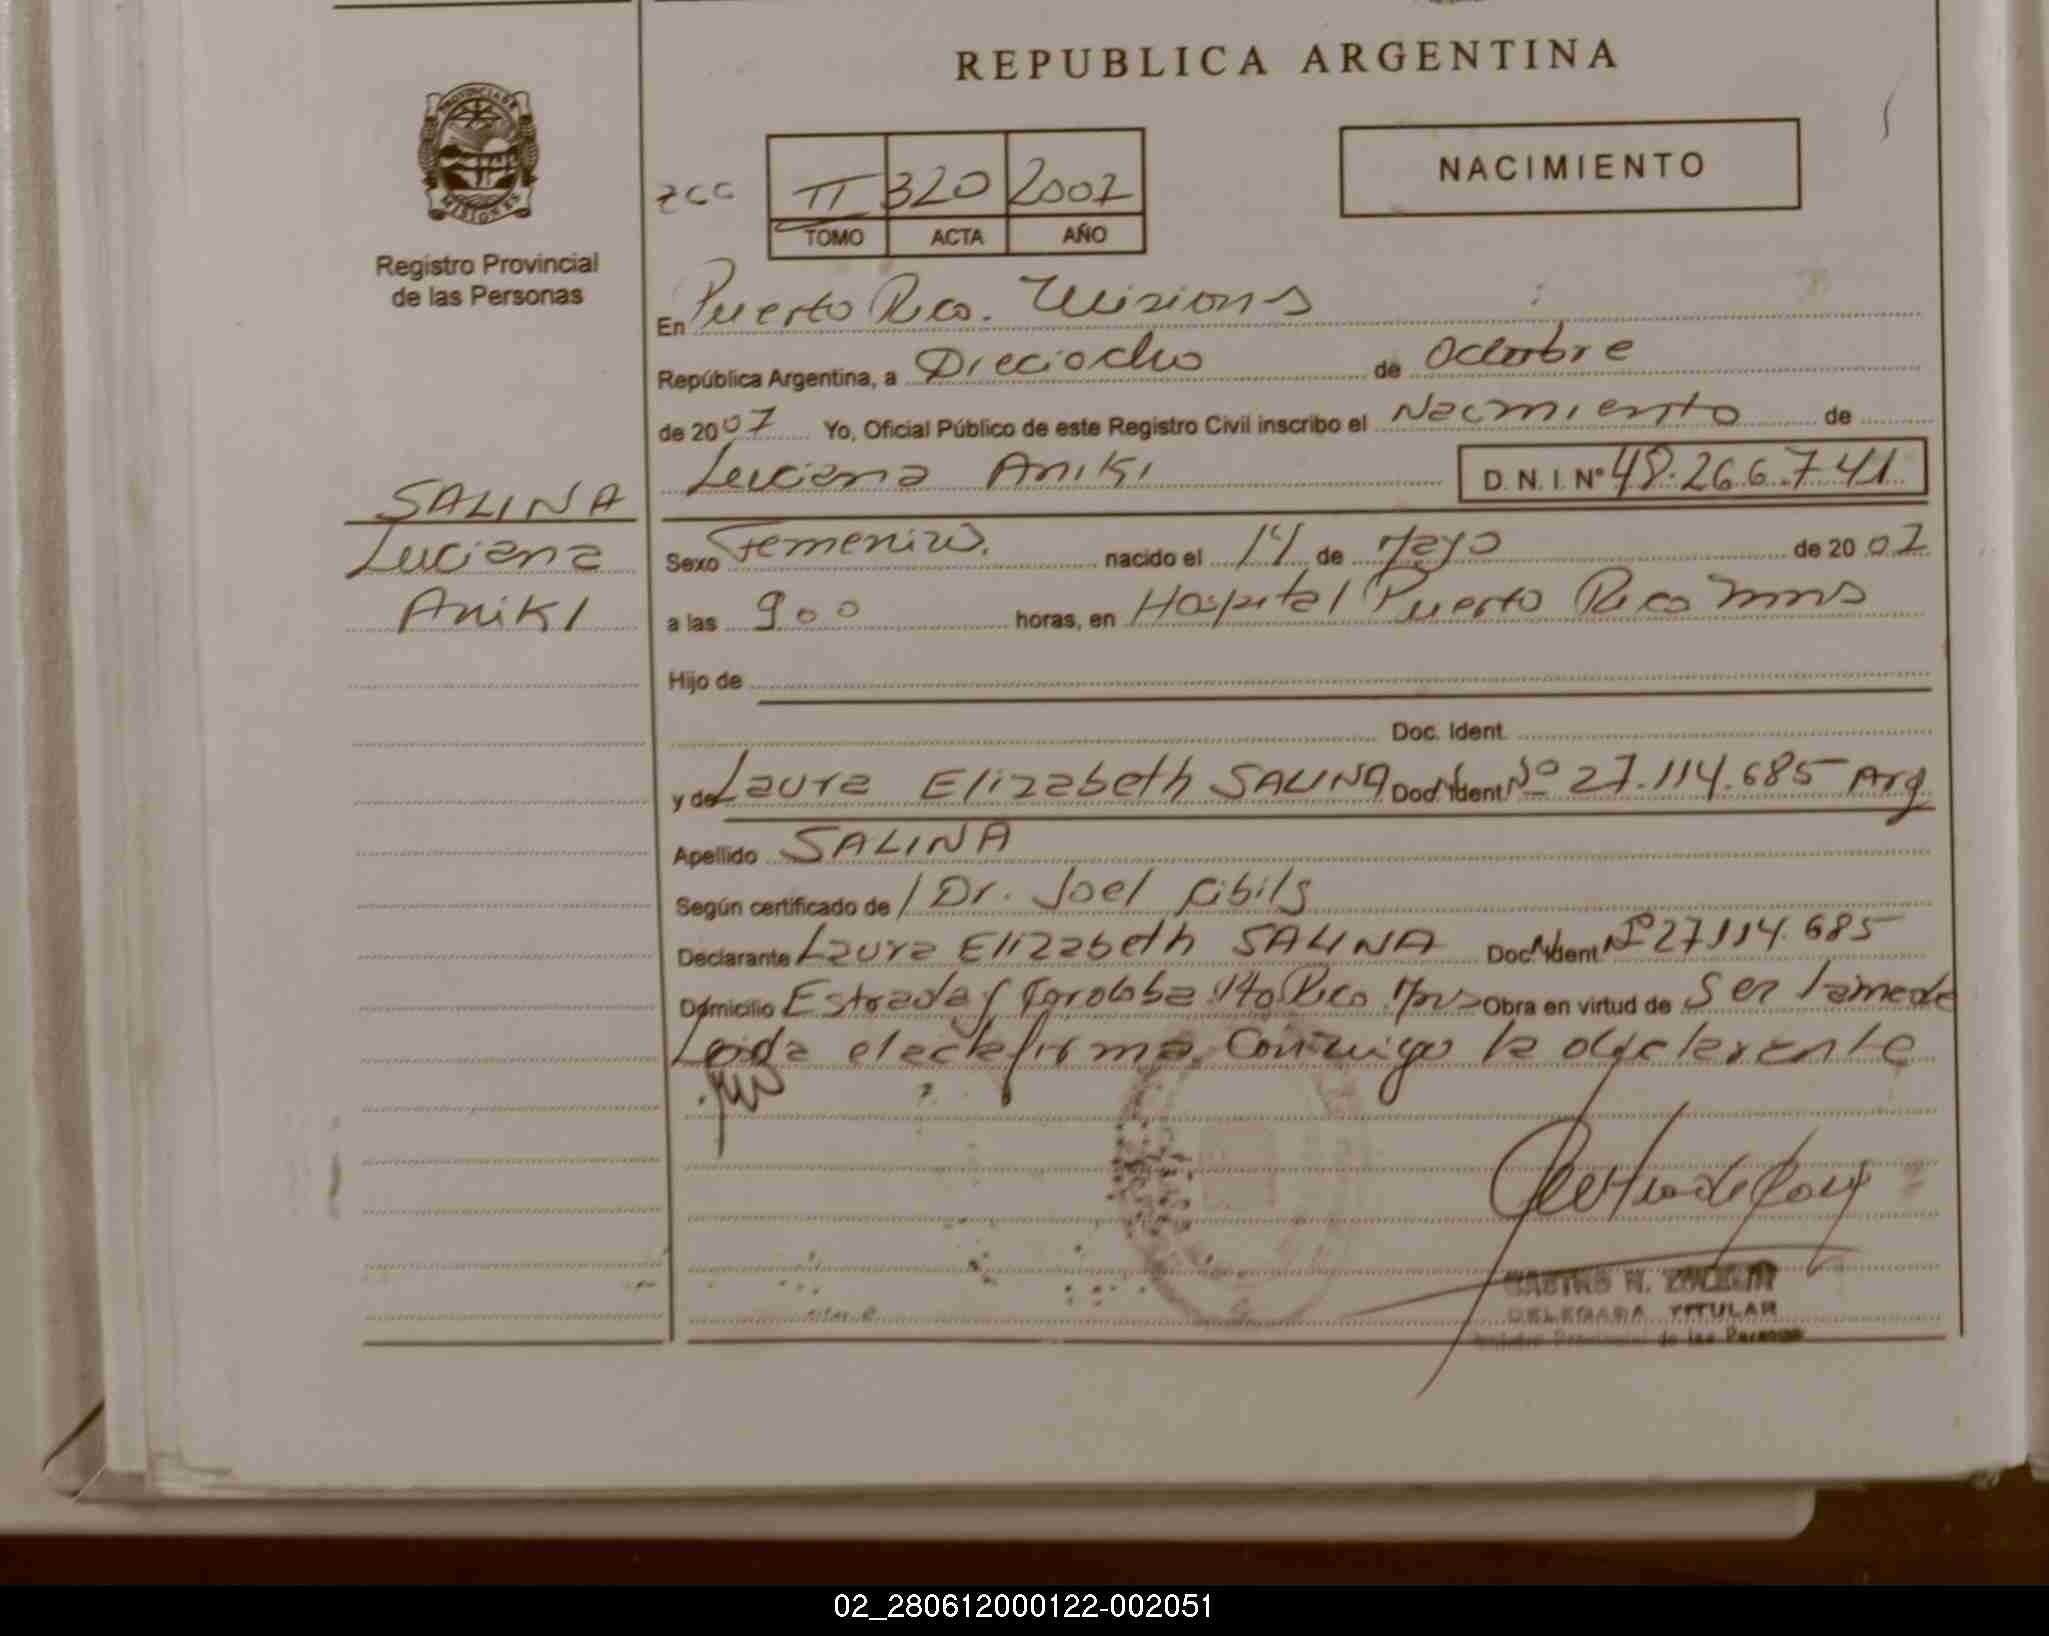 REPUBLICA ARGENTINA
PROVINCIA DE
MISIONES
Registro Provincial
de las Personas
NACIMIENTO
II 320 2007
TOMO ACTA AÑO
En Puerto Rico. Misions
República Argentina, a Dieciocho de Octubre
de 2007 Yo, Oficial Público de este Registro Civil inscribo el Nacmiento de
Luciana Aniki D.N.I. Nº 48.266.741
SALINA
Luciana
Aniki
Sexo Femenino. nacido el 14 de Mayo de 2007
a las 9 00 horas, en Hospital Puerto Rico Mnes
Hijo de
Doc. Ident.
y de Laura Elizabeth SALINA Doc. Ident. Nº 27.114.685 Arg
Apellido SALINA
Según certificado de Dr. Joel Cibils
Declarante Laura Elizabeth SALINA Doc. Ident. Nº 27114.685
Domicilio Estrada y Cordoba Pto Rico Mnes Obra en virtud de Ser la madre
Leida el acta firma Conmigo la declarante
CASTRO N.
DELEGADA TITULAR
de las Personas
02_280612000122-002051